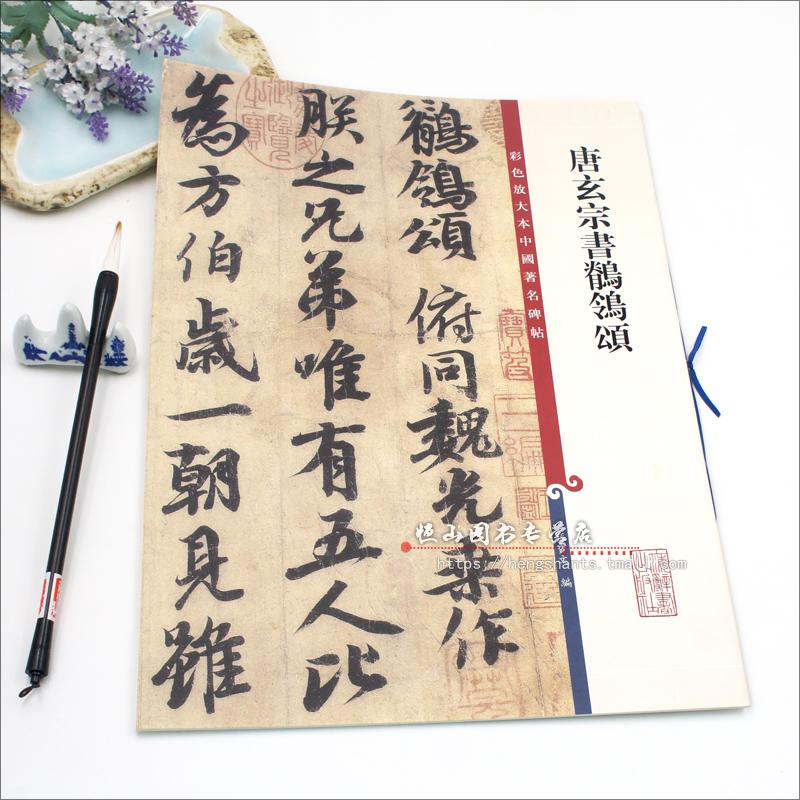 唐玄宗書鶺鴒頌
彩色放大本中國著名碑帖
鶺鴒頌 俯同魏光乗作
朕之兄弟唯有五人比
為方伯歲一朝見雖
恒山图书专营店
https://hengshants.tmall.com
編